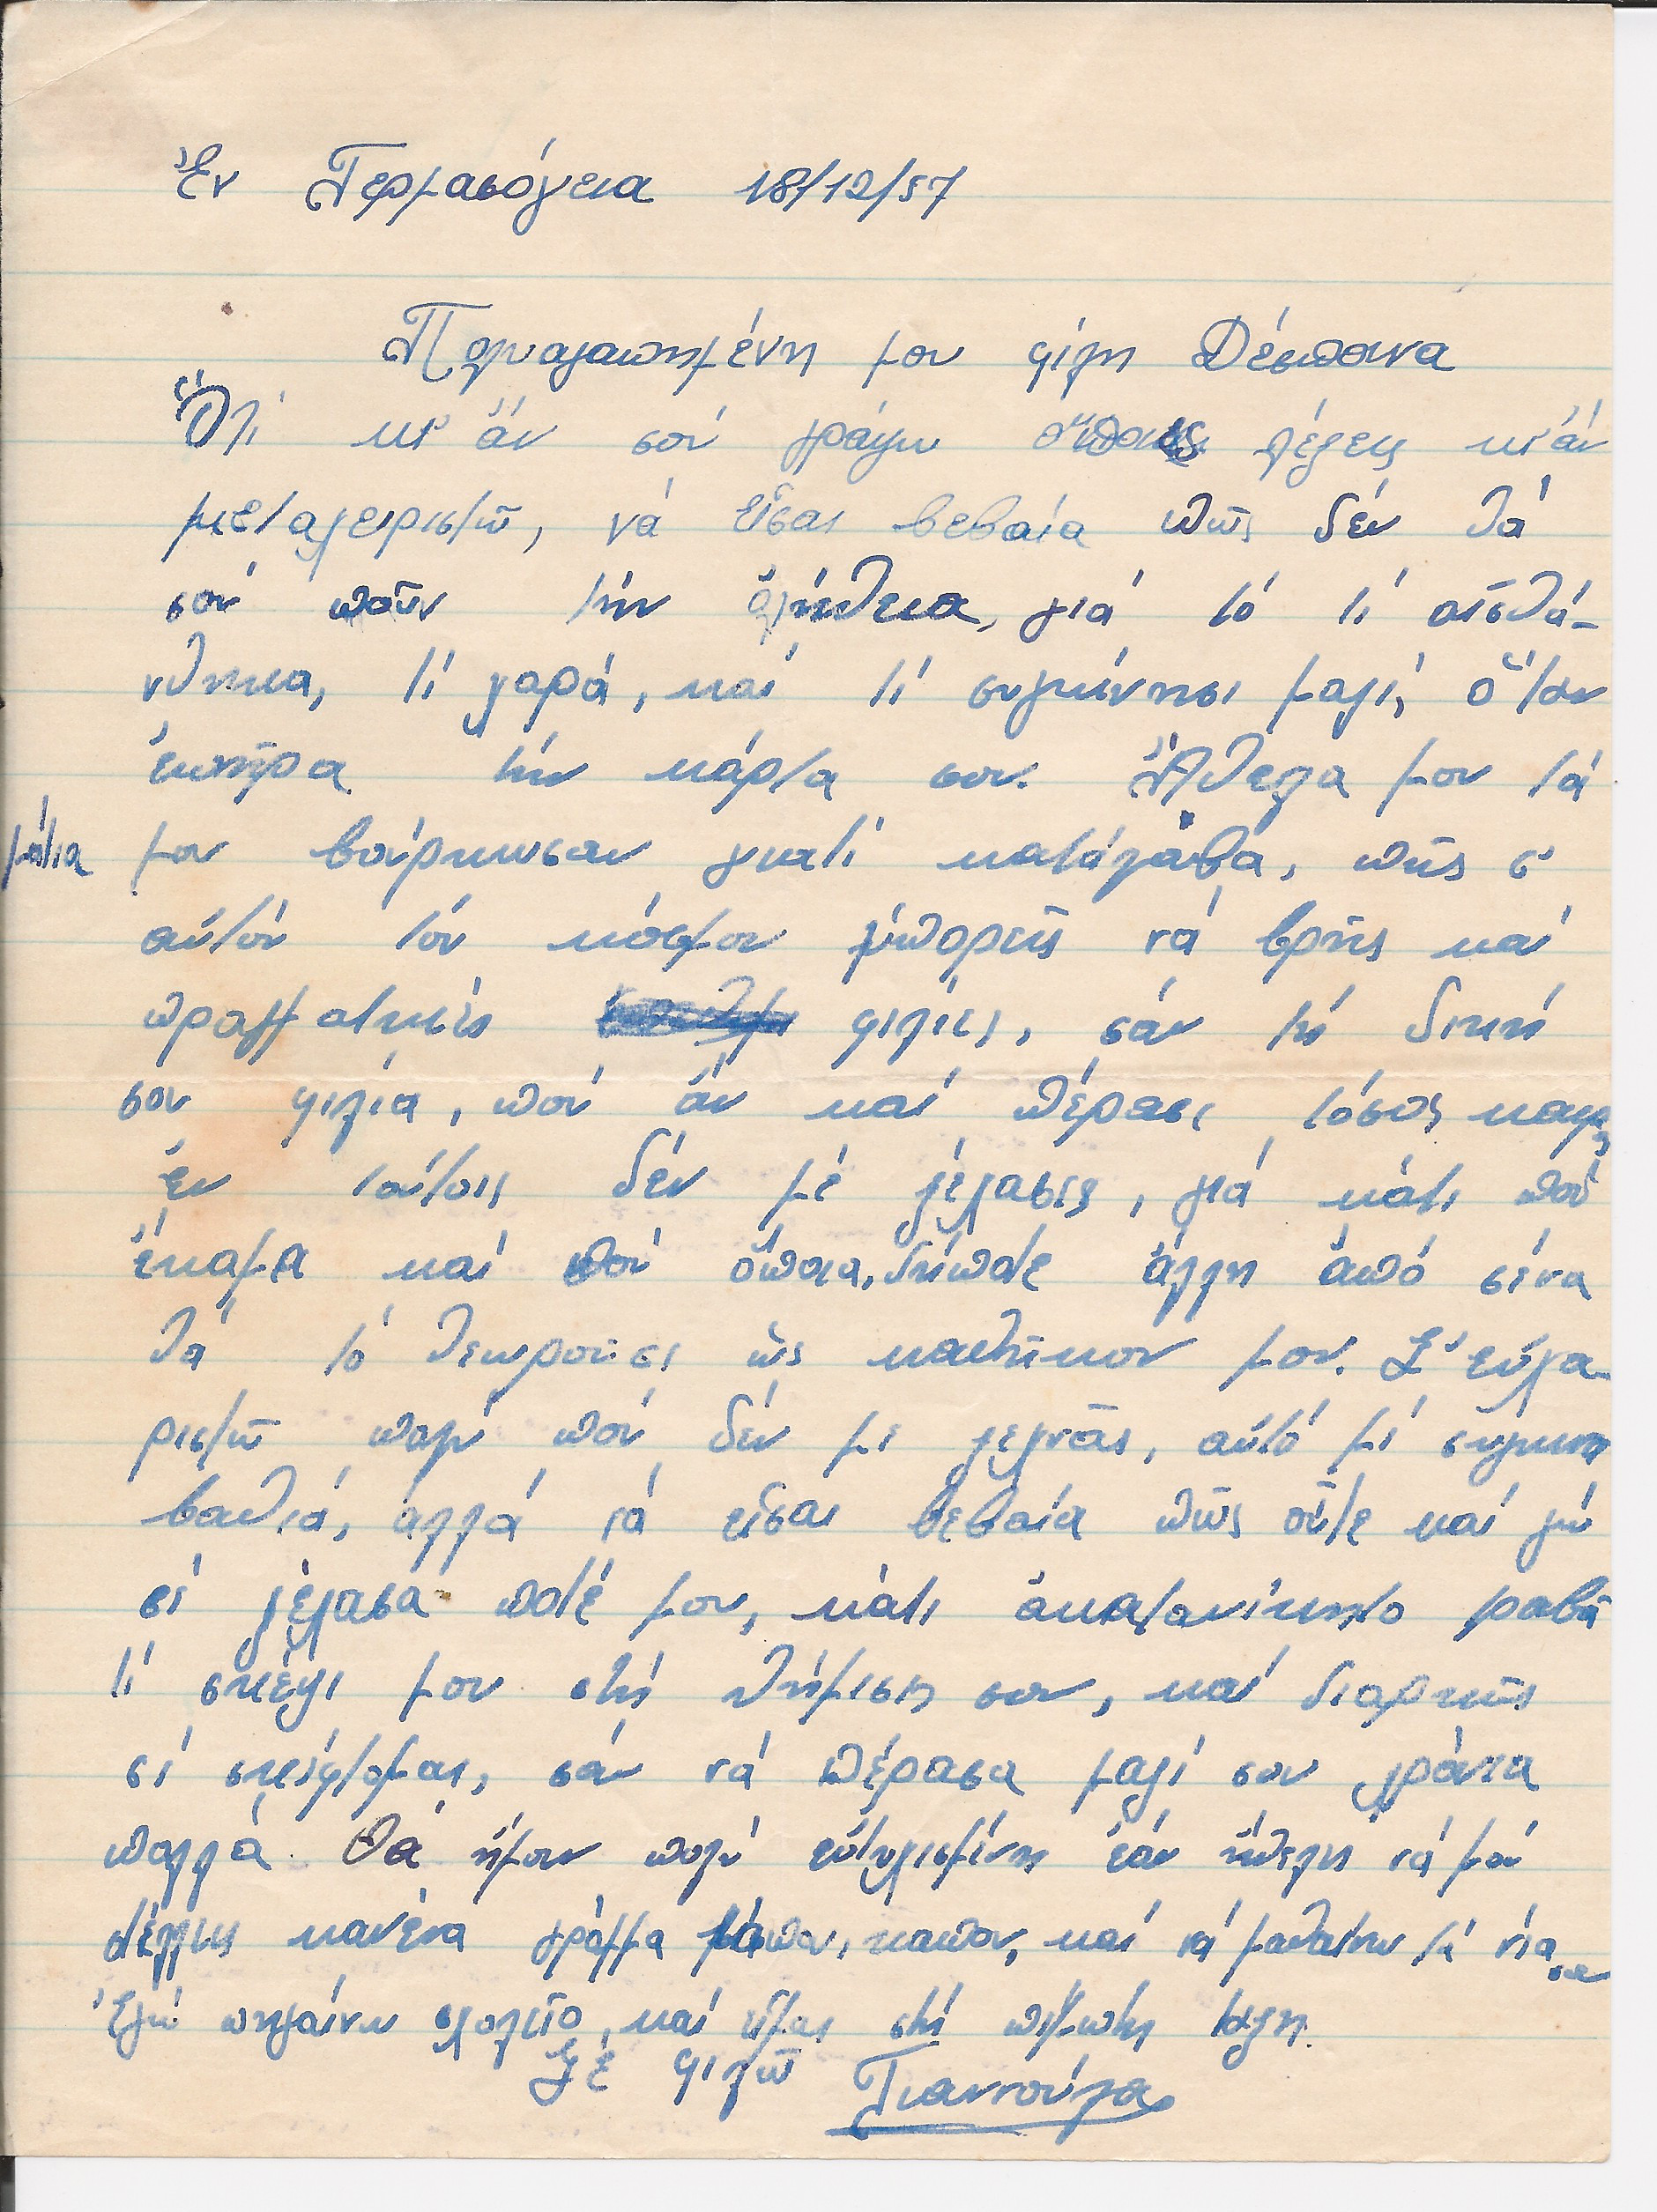 Ἐν Γερμασόγεια 18/12/57
Πολυαγαπημένη μου φίλη Δέσποινα
Ὅτι κι' ἄν σοῦ γράψω ὅποιες λέξεις κι' ἄν
μεταχειριστῶ, νά εἶσαι βεβαία πῶς δέν θά
σοῦ ποῦν τήν ἀλήθεια, γιά τό τί αἰσθά-
νθηκα, τί χαρά, καί τί συγκίνησι μαζί, ὅταν
ἐπῆρα τήν κάρτα σου. Ἄθελα μου τά
μάτια μου βούρκωσαν γιατί κατάλαβα, πῶς σ'
αὐτόν τόν κόσμον μπορεῖς νά βρῆς καί
πραγματικές φιλίες, σάν τή δική
σου φιλία, πού ἄν καί πέρασε τόσος καιρός
ἐν τούτοις δέν μέ ξέχασες, γιά κάτι πού
ἔκαμα καί πού ὅποια, δήποτε ἄλλη ἀπό σένα
θά τό θεωροῦσε ὡς καθῆκον μου. Σ' εὐχα-
ριστῶ πολύ πού δέν με ξεχνᾶς, αὐτό μέ συγκινεῖ
βαθιά, ἀλλά νά εἶσαι βεβαία πῶς οὔτε καί γώ
σέ ξέχασα ποτέ μου, κάτι ἀκατανίκητο τραβᾶ
τί σκέψι μου στή θήμισις σου, καί διαρκῶς
σέ σκέφτομαι, σάν νά πέρασα μαζί σου χρόνια
πολλά. Θά ἤμουν πολύ εὐτυχισμένη ἐάν ἤθελες νά μοῦ
στέλλεις κανένα γράμμα κάπου, κάπου, καί νά μαθαίνω τά νέα σου
Ἐγώ πηγαίνω σχολεῖο, καί εἶμαι στή πέμπτη τάξη.
Σέ φιλῶ Γιαννούλα